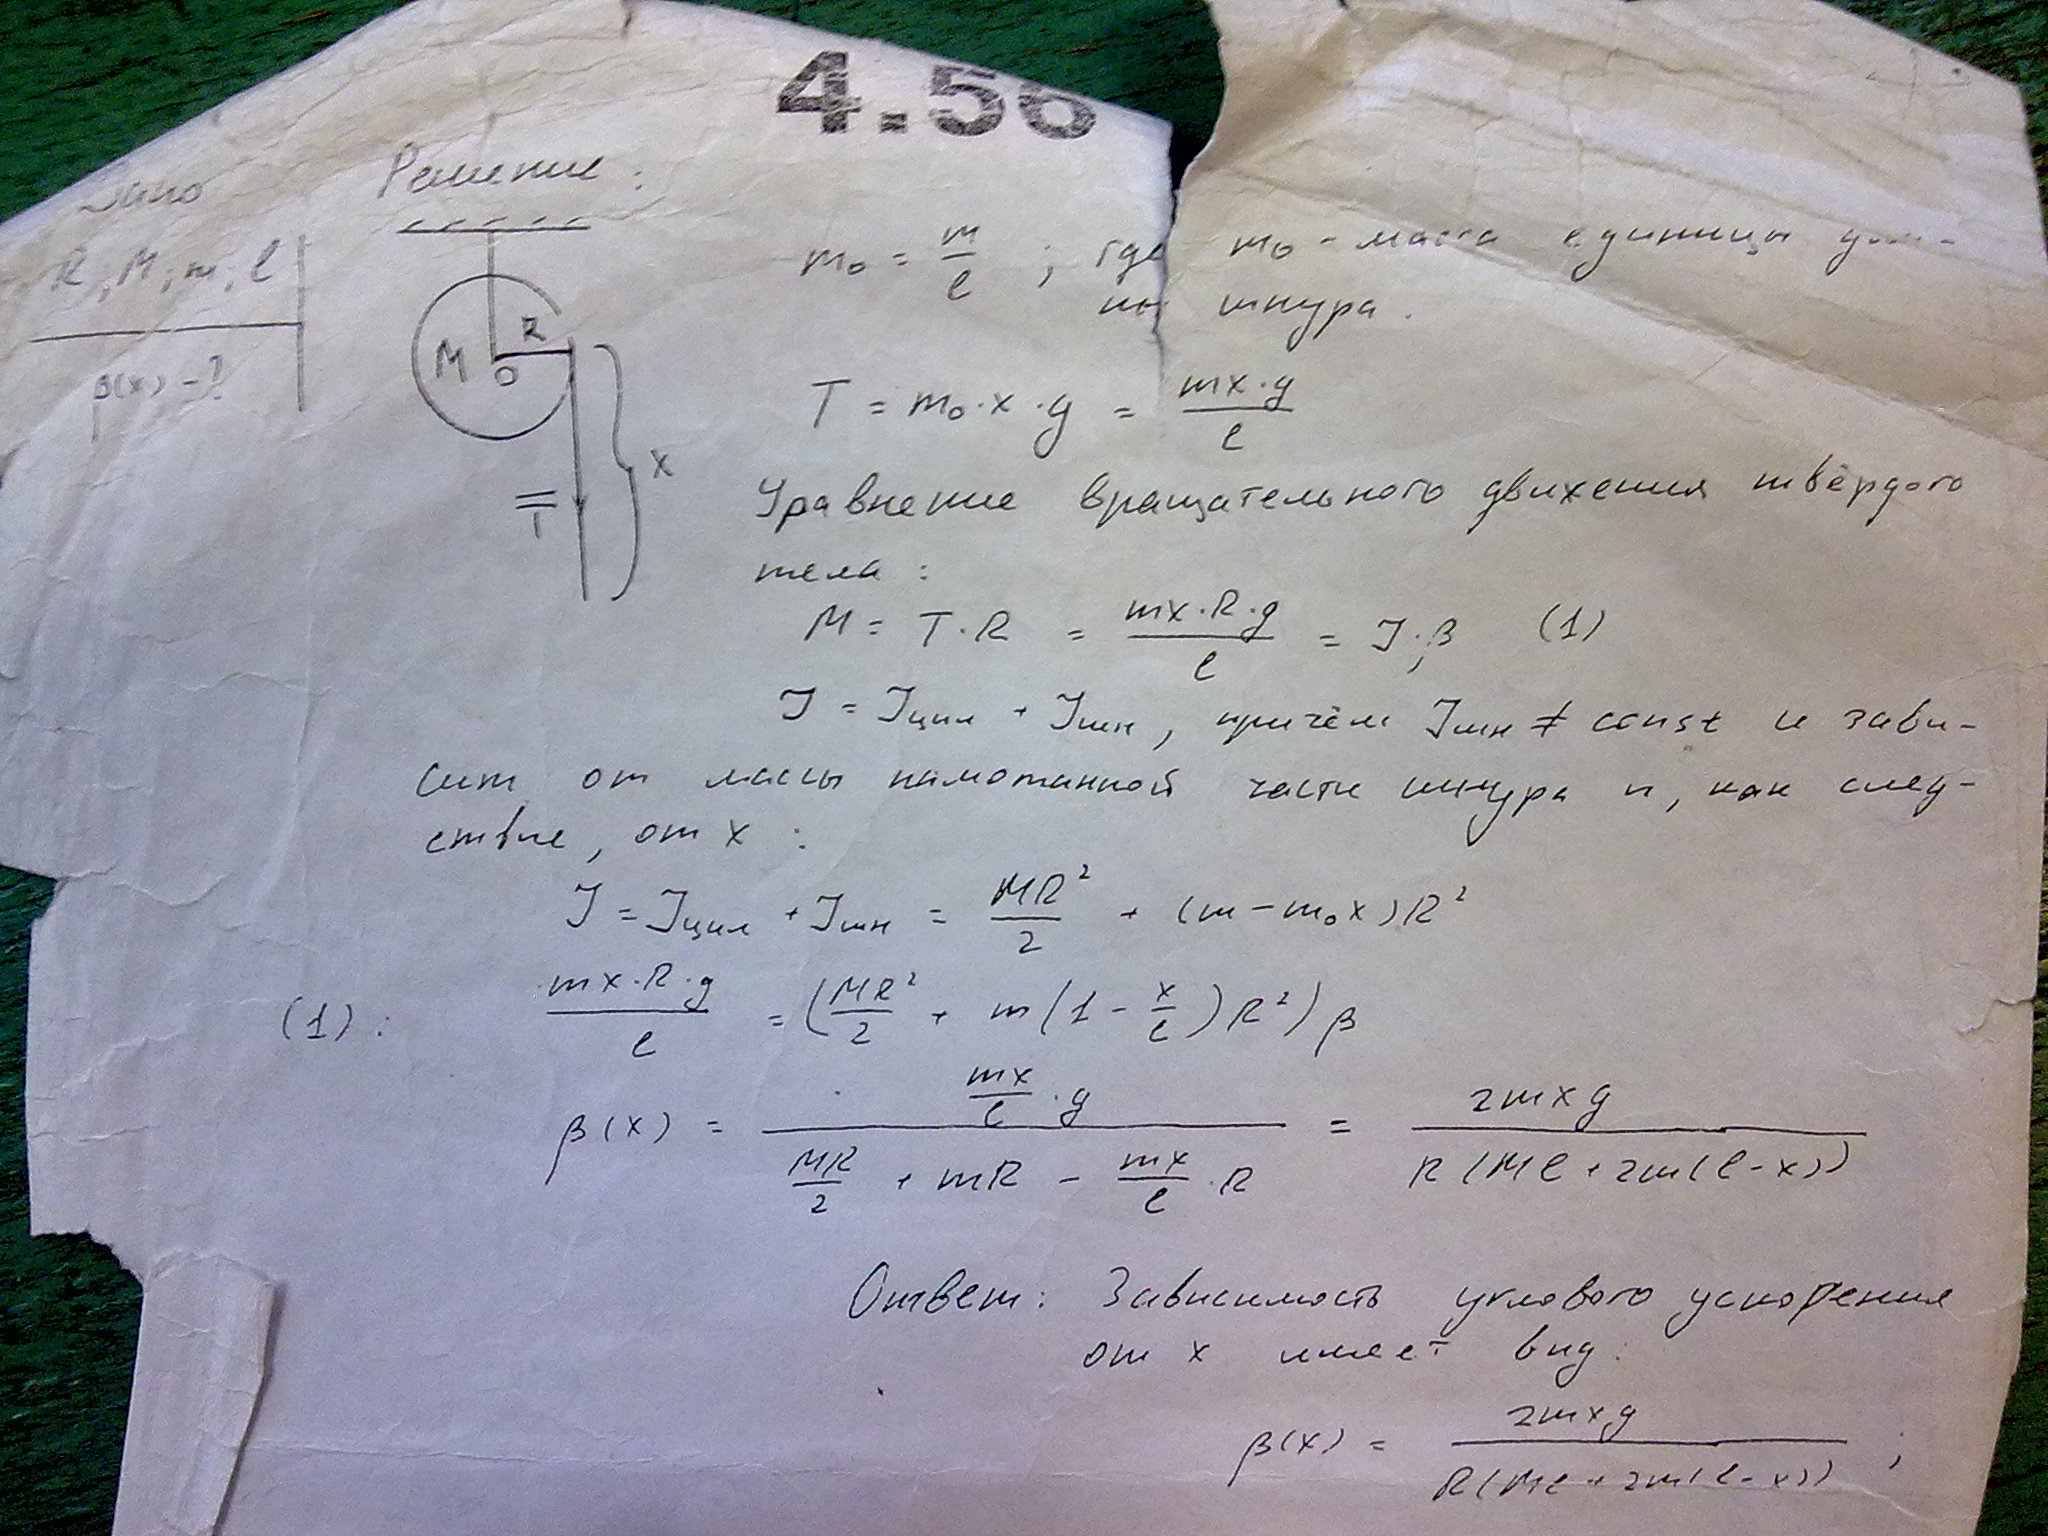 4.56
Дано
Решение:
R, M, m, l
β(x) - ?
M
R
O
x
T
m₀ = m/l ; где m₀ - масса единицы дли-
ны шнура.
T = m₀·x·g = mx·g/l
Уравнение вращательного движения твёрдого
тела:
M = T·R = mx·R·g/l = J·β (1)
J = Jцил + Jшн, причём Jшн ≠ const и зави-
сит от массы намотанной части шнура и, как след-
ствие, от x:
J = Jцил + Jшн = MR²/2 + (m - m₀x)R²
(1): mx·R·g/l = (MR²/2 + m(1 - x/l)R²)β
β(x) = (mx/l·g)/(MR/2 + mR - mx/l·R) = 2mxg/R(Ml + 2m(l-x))
Ответ: Зависимость углового ускорения
от x имеет вид:
β(x) = 2mxg/R(Ml + 2m(l-x)) ;